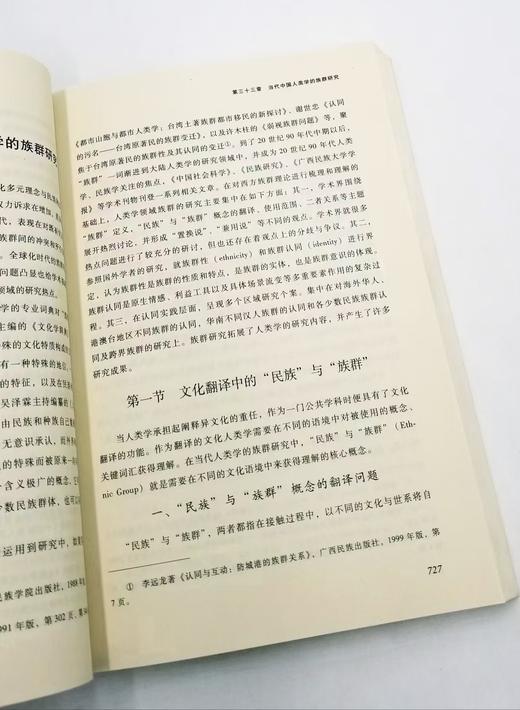 学的族群研究
化多元理念与民
权力诉求在增加，
代，表现在对
族群间的冲突和
全球化时代的
问题凸显也给学
领域的研究热点。
学的专业词典对
主编的《文化学辞典
的文化特质构成的
有一种特殊的地位，
的特征，以及在
吴泽霖主持编纂的
由民族和种族自己
无意识承认，而
的特殊而被原来一
含义极广的概念，
少数民族群体，也可
运用到研究中，如
民族学院出版社，1988年
991年版，第302页、第
第三十三章 当代中国人类学的族群研究
《都市山胞与都市人类学：台湾土著族群都市移民的新探讨》、谢世忠《认同
的污名——台湾原著民的族群变迁》，以及许木柱的《弱视族群问题》等，聚
焦于台湾原著民的族群性及其认同的变迁①。到了20世纪90年代中期以后，
“族群”一词渐进到大陆人类学的研究领域中，并成为20世纪90年代人类
学、民族学关注的焦点，《中国社会科学》、《民族研究》、《广西民族大学学
报》等学术刊物刊登一系列相关文章。在对西方族群理论进行梳理和理解的
基础上，人类学领域族群的研究主要集中在如下方面：其一，学术界围绕
“族群”定义，“民族”与“族群”概念的翻译、使用范围、二者关系等主题
展开热烈讨论，并形成“置换说”、“兼用说”等不同的观点。学术界就很多
热点问题进行了较充分的研讨，但也还存在着观点上的分歧与争议。其二，
参照国外学者的研究，就族群性（ethnicity）和族群认同（identity）进行界
定，认为族群性是族群的性质和特点，是族群的实体，也是族群意识的体现。
族群认同是原生情感、利益工具以及具体场景流变等多重要素作用的复杂过
程。其三，在认同实践层面，呈现多个区域研究个案。集中在对海外华人、
港澳台地区不同族群的认同，华南不同汉人族群的认同和各少数民族族群认
同及跨界族群的研究上。族群研究拓展了人类学的研究内容，并产生了许多
研究成果。
第一节 文化翻译中的“民族”与“族群”
当人类学承担起阐释异文化的重任，作为一门公共学科时便具有了文化
翻译的功能。作为翻译的文化人类学需要在不同的语境中对被使用的概念、
关键词汇获得理解。在当代人类学的族群研究中，“民族”与“族群”（Eth-
nic Group）就是需要在不同的文化语境中来获得理解的核心概念。
一、“民族”与“族群”概念的翻译问题
“民族”与“族群”，两者都指在接触过程中，以不同的文化与世系将自
① 李远龙著《认同与互动：防城港的族群关系》，广西民族出版社，1999年版，第
7页。
727